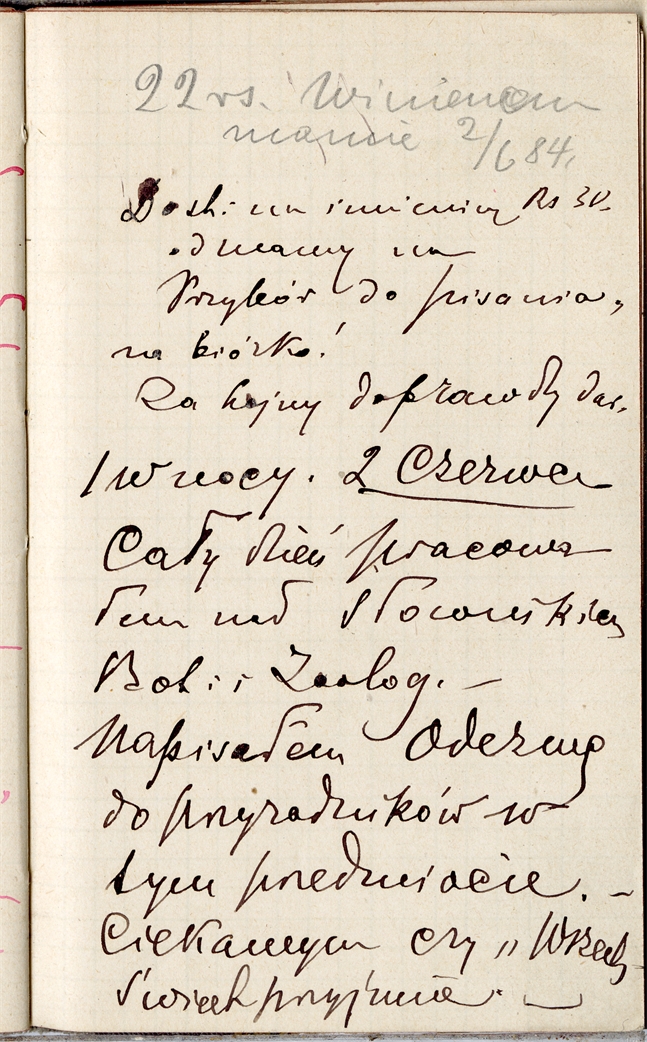 22 rs. Winienem
mamie 2/6 84.
Dostałem na imieniny Rs 30.
od mamy na
Przybór do pisania,
na biórko!
Za hojny doprawdy dar.
1 w nocy. 2 Czerwca
Cały dzień pracowa
łem nad Słownikiem
Bot. i Zoolog. —
Napisałem Odezwę
do przyrodników w
tym przedmiocie. —
Ciekawym czy „Wszech
świat przyjmie. —